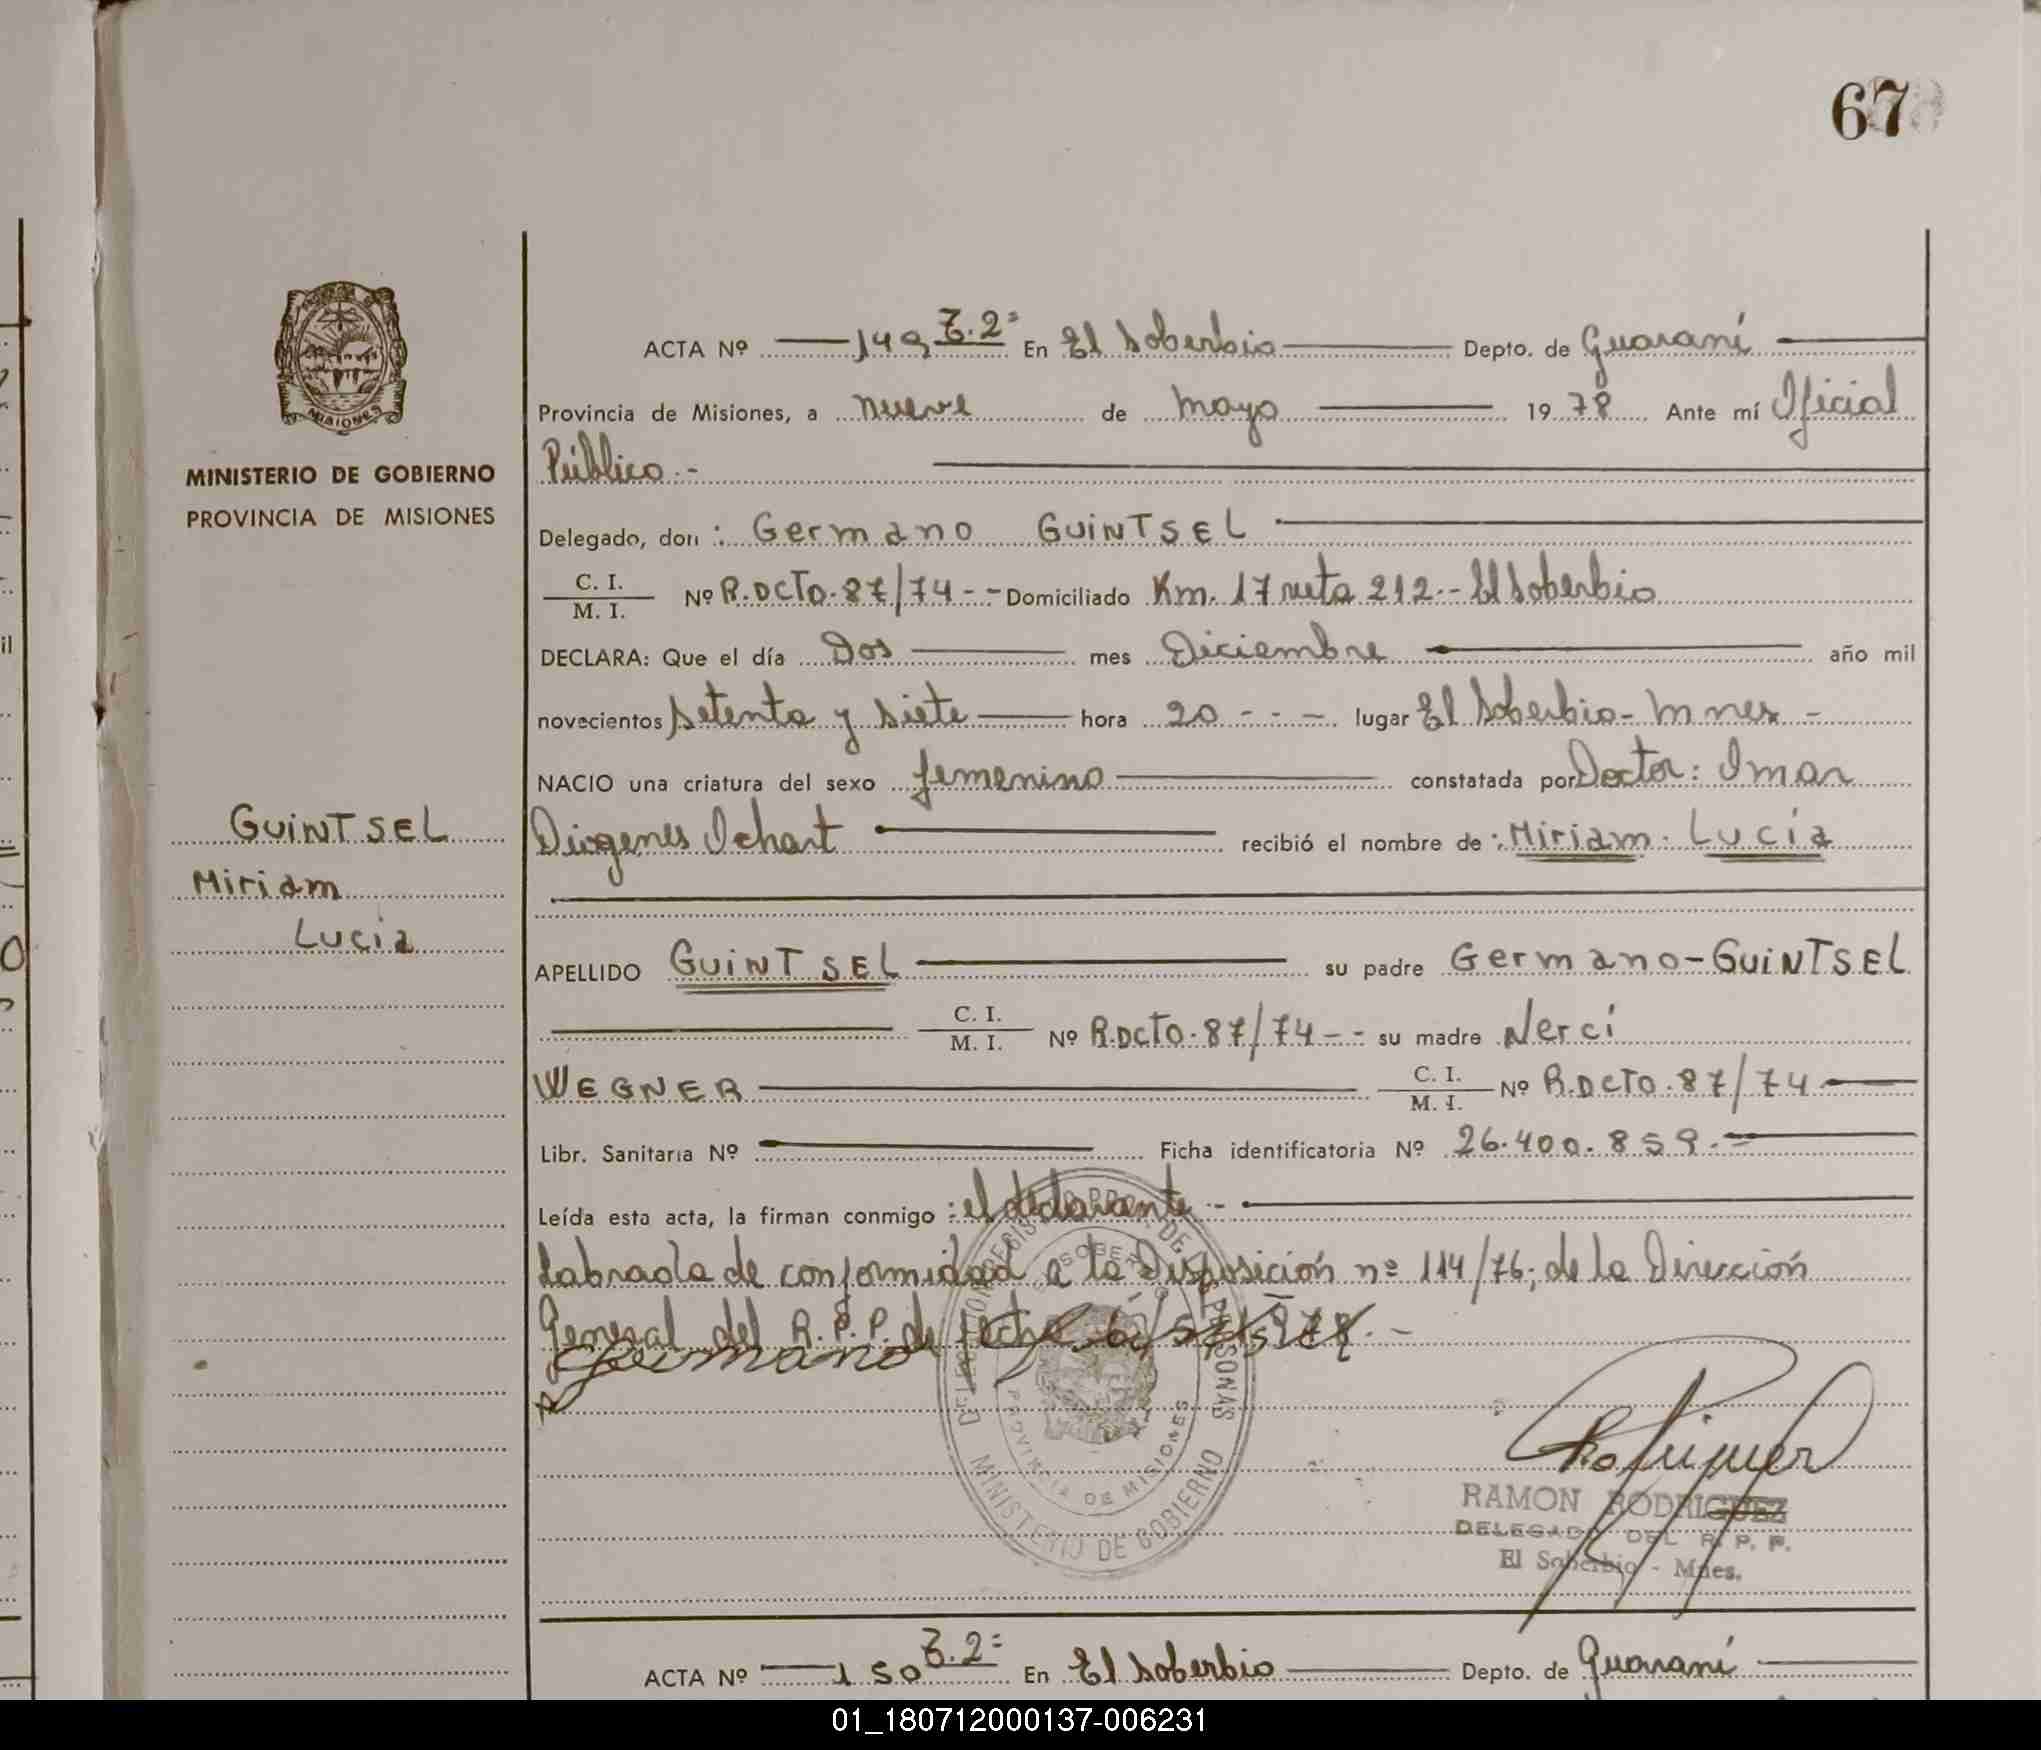 67
MISIONES
MINISTERIO DE GOBIERNO
PROVINCIA DE MISIONES
GUINTSEL
Miriam
Lucía
ACTA Nº 149 T.2º En El Soberbio Depto. de Guaraní
Provincia de Misiones, a nueve de mayo 1978 Ante mí Oficial
Público.-
Delegado, don: Germano GUINTSEL
C. I.
M. I. Nº R.DCTO.87/74-- Domiciliado Km. 17 ruta 212.- El Soberbio
DECLARA: Que el día Dos mes Diciembre año mil
novecientos setenta y siete hora 20 - - - lugar El Soberbio - Mnes -
NACIO una criatura del sexo femenino constatada por Doctor: Imar
Diógenes Ichart recibió el nombre de: Miriam. Lucía
APELLIDO GUINTSEL su padre Germano-GUINTSEL
C. I.
M. I. Nº R.DCTO.87/74-- su madre Nerci
WEGNER C. I.
M. I. Nº R.DCTO.87/74
Libr. Sanitaria Nº Ficha identificatoria Nº 26.400.859.-
Leída esta acta, la firman conmigo: el declarante.-
Labrada de conformidad a la Disposición nº 114/76; de la Dirección
General del R.P.P. de fecha
Germano
MINISTERIO DE GOBIERNO
PROVINCIA DE MISIONES
RAMON RODRIGUEZ
DELEGADO DEL R. P. P.
El Soberbio - Mnes.
ACTA Nº 150 T.2º En El Soberbio Depto. de Guaraní
01_180712000137-006231